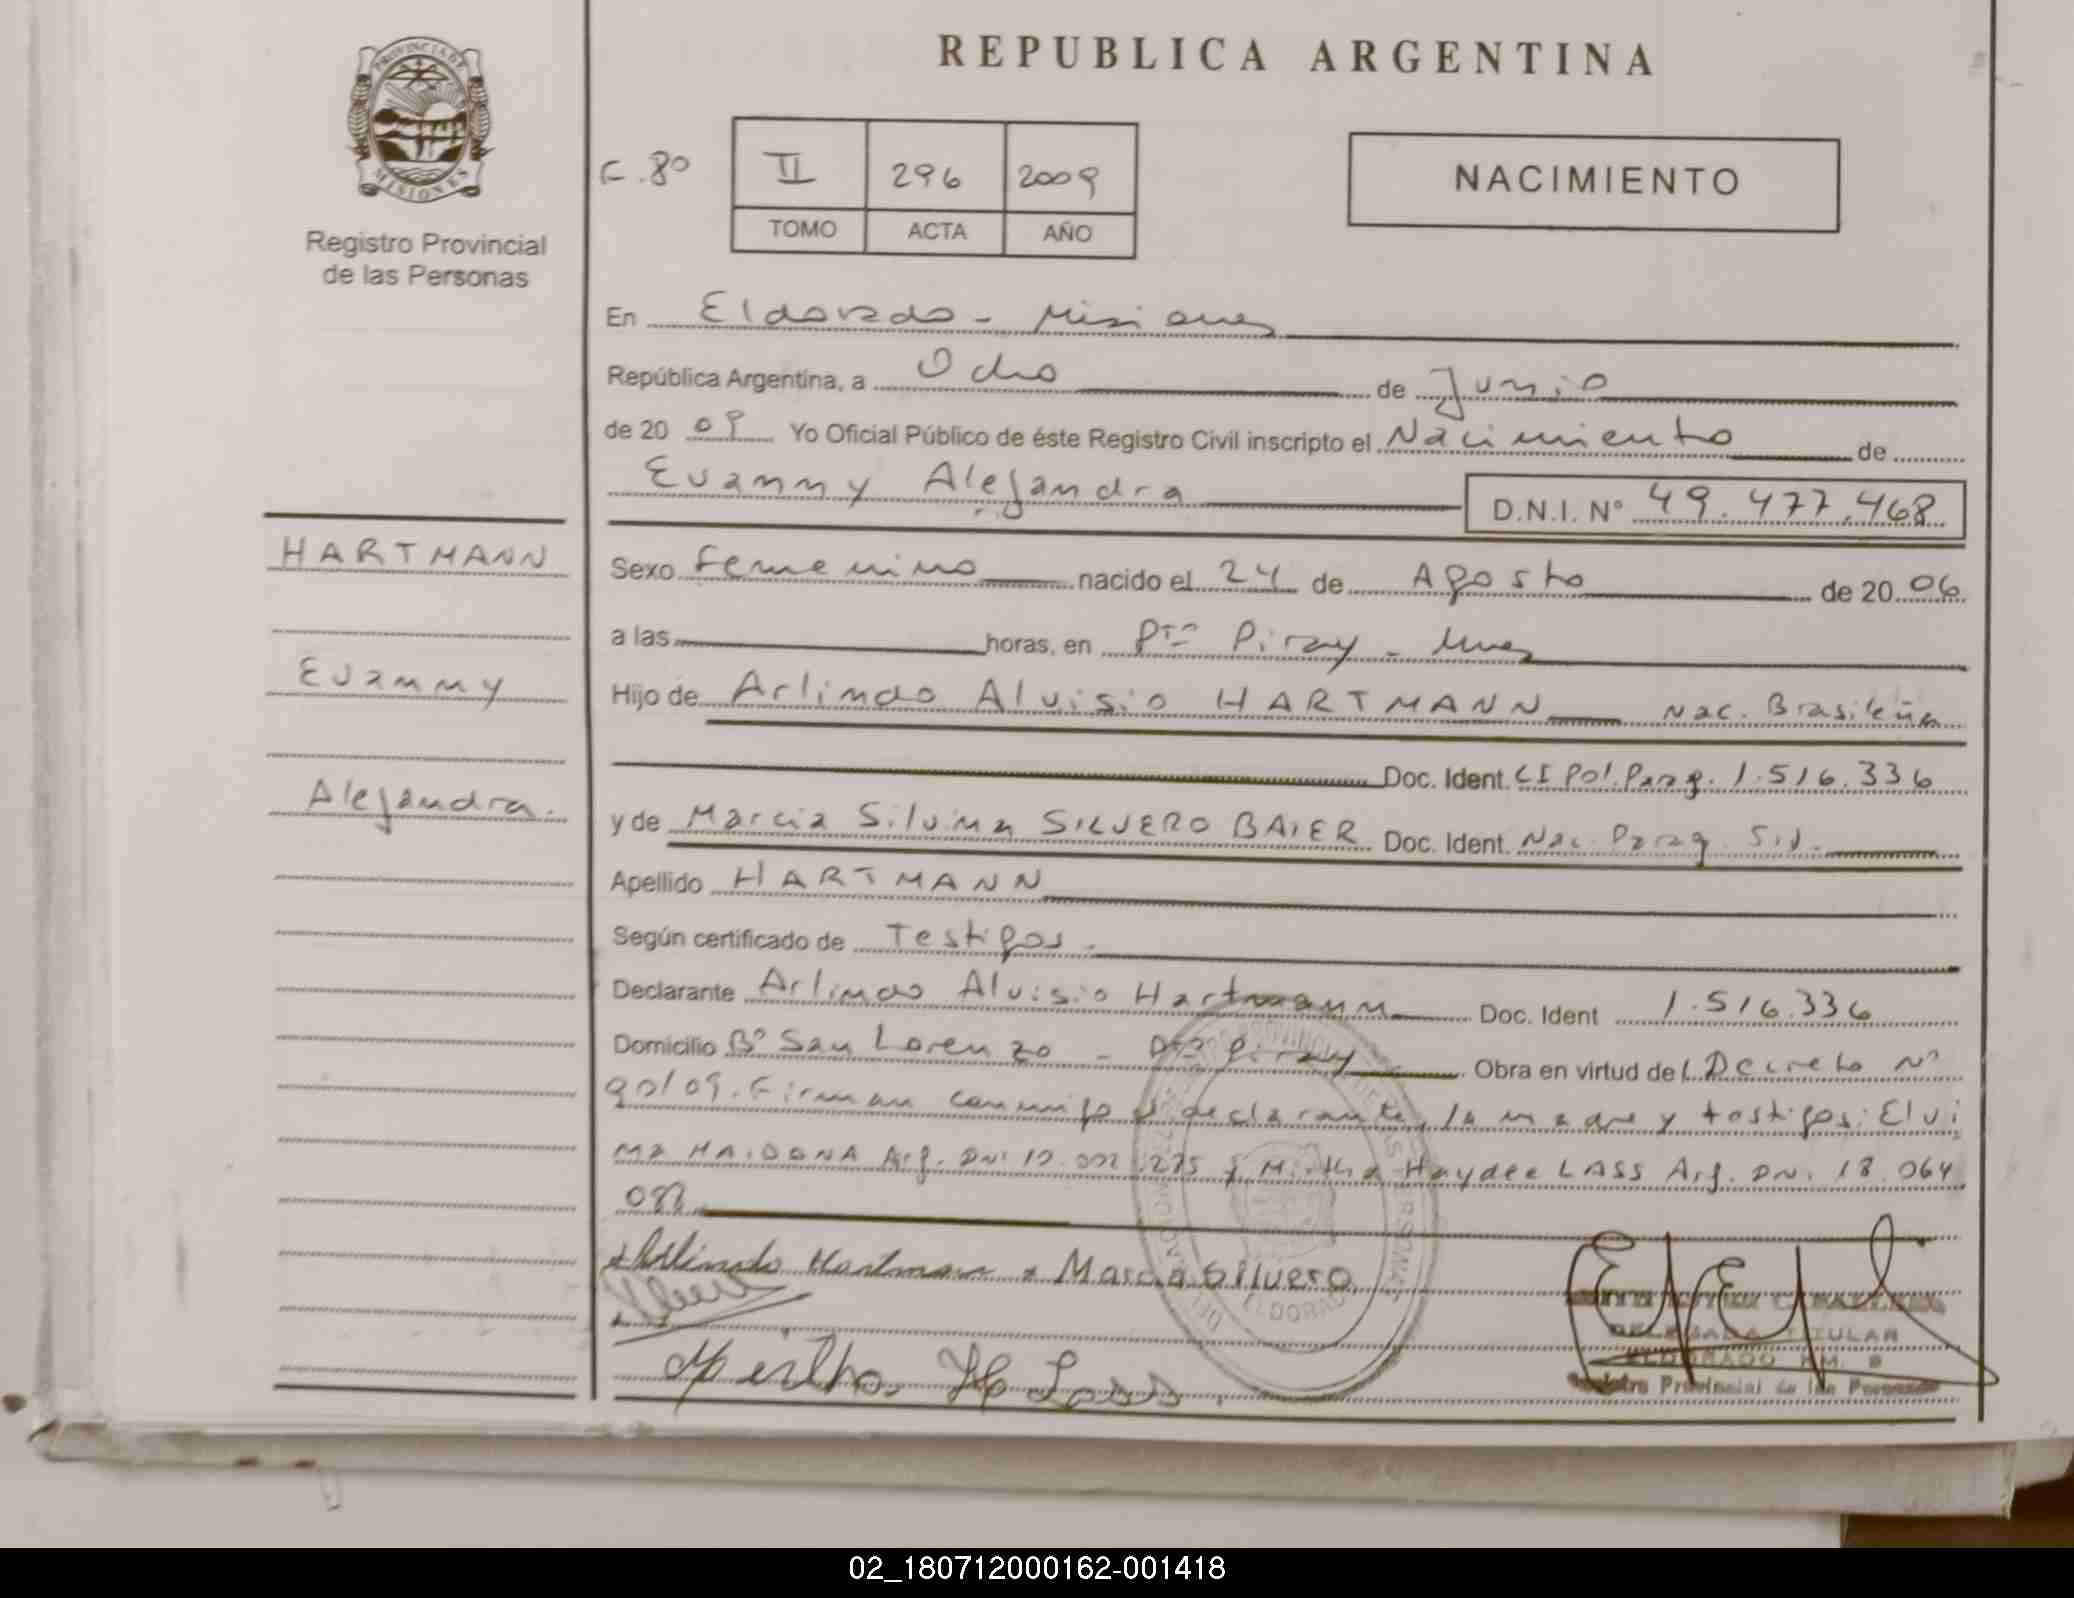 PROVINCIA DE
MISIONES
Registro Provincial
de las Personas
REPUBLICA ARGENTINA
F. 80
II 296 2009
TOMO ACTA AÑO
NACIMIENTO
En Eldorado - Misiones
República Argentina, a Ocho de Junio
de 20 09 Yo Oficial Público de éste Registro Civil inscripto el Nacimiento de
Evanny Alejandra D.N.I. Nº 49.477.468
HARTMANN
Evanny
Alejandra.
Sexo Femenino nacido el 24 de Agosto de 20 06
a las horas, en Pto Piray - Mnes
Hijo de Arlindo Aluisio HARTMANN Nac. Brasileña
Doc. Ident. CI Pol. Parag. 1.516.336
y de Marcia Silvina SILVERO BAIER Doc. Ident. Nac. Parag. S.d.
Apellido HARTMANN
Según certificado de Testigos.
Declarante Arlindo Aluisio Hartmann Doc. Ident 1.516.336
Domicilio Bº San Lorenzo - Pto Piray Obra en virtud del Decreto Nº
90/09. Firman conmigo el declarante, la madre y testigos: Elvi
ma MAIDONA Arg. DNI y Mirtha Haydee LASS Arg. DNI 18.064
Arlindo Hartmann Marcia Silvero
Mirtha H Lass.
ELDORADO
DELEGADA TITULAR
ELDORADO KM. 9
Registro Provincial de las Personas
02_180712000162-001418